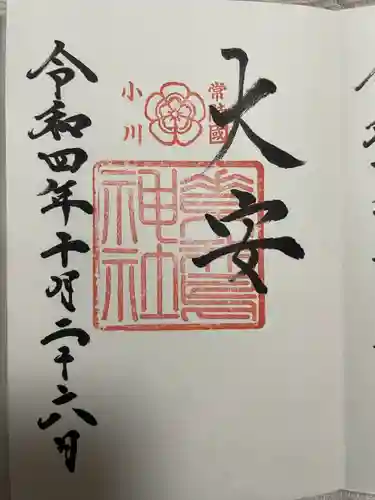 常陸國
大安
小川
素鵞神社
令和四年十月二十六日